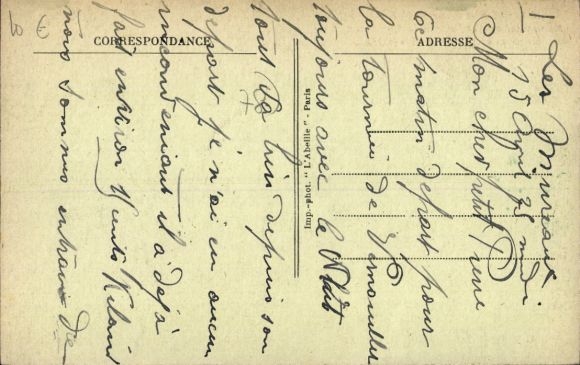 CORRESPONDANCE
ADRESSE
Imp.-phot. "L'Abeille" - Paris
1
Les Mureaux
15 Avril midi
Mon cher petit René
Ce matin départ pour
la tournée de
toujours avec le
tout va bien depuis son
départ je n'ai eu aucun
inconvenient il a déjà
fait environ
nous sommes entrain de